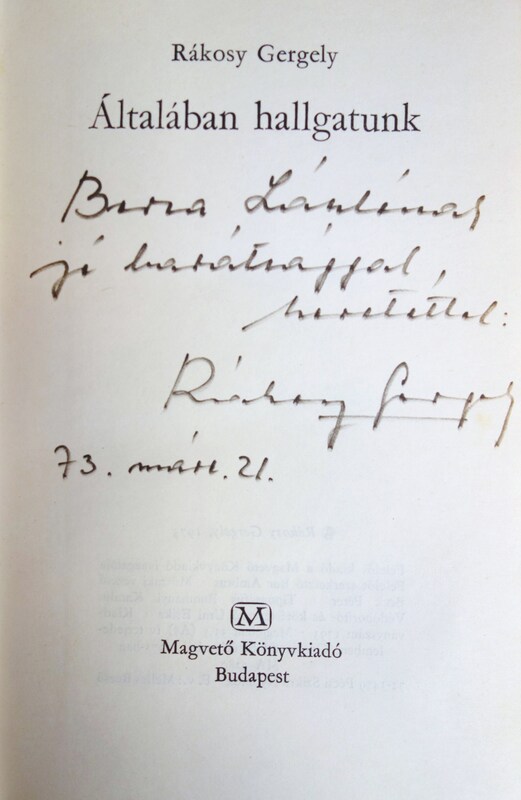 Rákosy Gergely
Általában hallgatunk
Borza Lászlónak
jó barátsággal,
szeretettel:
Rákosy Gergely
73. márc. 21.
M
Magvető Könyvkiadó
Budapest